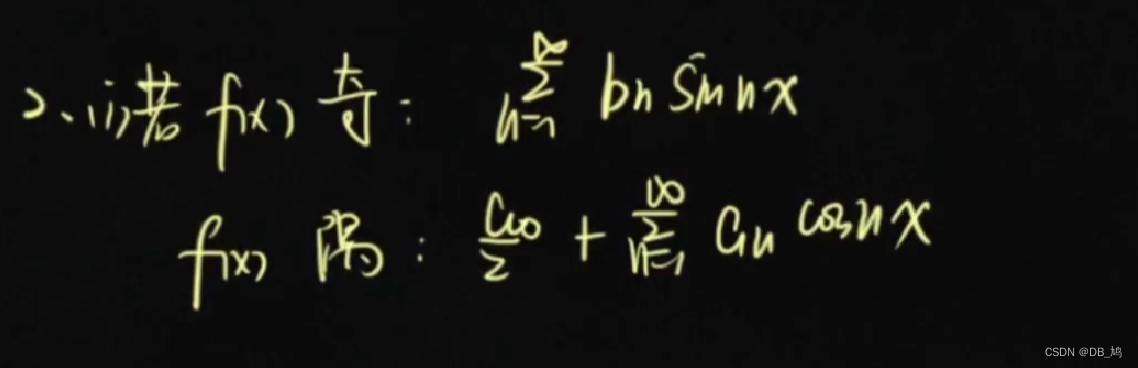 2、(1)若 f(x) 奇: ∑_{n=1}^{∞} bn Sin nx
f(x) 隅: a0/2 + ∑_{n=1}^{∞} an cosnx
CSDN @DB_鸠